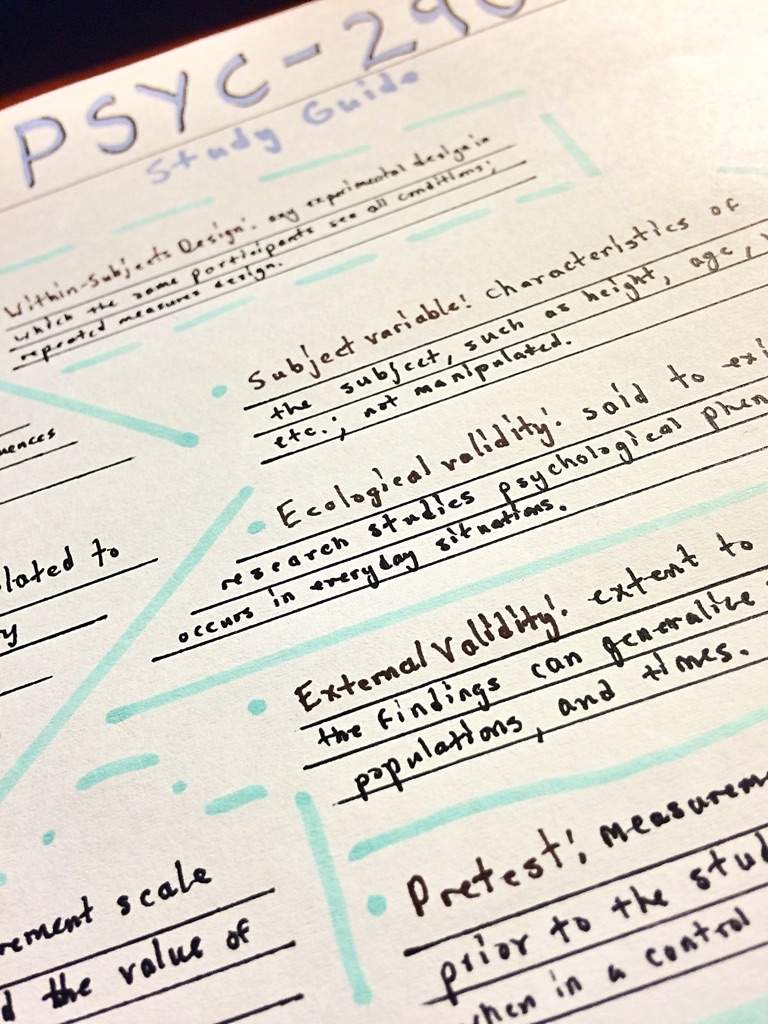 PSYC-290
Study Guide
Within-Subjects Design: any experimental design in
which the same participants see all conditions;
repeated measures design.
Subject variable: characteristics of
the subject, such as height, age,
etc.; not manipulated.
Ecological validity: said to exi
research studies psychological phen
occurs in everyday situations.
External Validity: extent to
the findings can generalize
populations, and times.
Pretest: measurem
prior to the stud
when in a control
uences
lated to
y
rement scale
d the value of